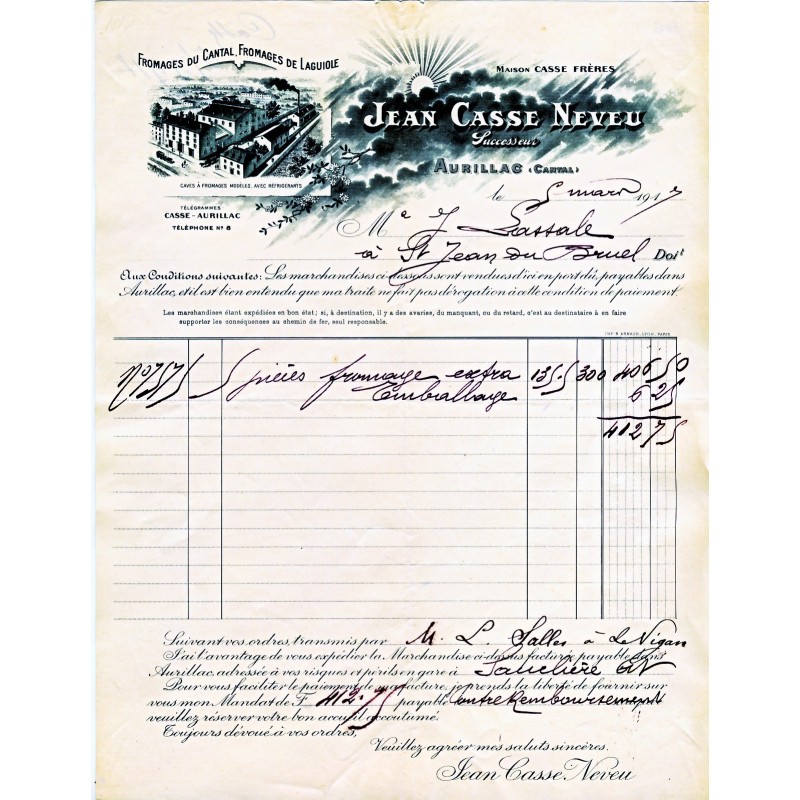 FROMAGES DU CANTAL, FROMAGES DE LAGUIOLE
MAISON CASSE FRÈRES
JEAN CASSE NEVEU
Successeur
AURILLAC (CANTAL)
CAVES À FROMAGES MODÈLES, AVEC RÉFRIGÉRANTS
TÉLÉGRAMMES
CASSE-AURILLAC
TÉLÉPHONE Nº 8
le 5 mars 1917
M J Lassale
à St Jean du Bruel Doit
Aux Conditions suivantes: Les marchandises ci-dessous sont vendues d'ici en port dû, payables dans
Aurillac, et il est bien entendu que ma traite ne fait pas dérogation à cette condition de paiement.
Les marchandises étant expédiées en bon état; si, à destination, il y a des avaries, du manquant, ou du retard, c'est au destinataire à en faire
supporter les conséquences au chemin de fer, seul responsable.
IMP. B. ARNAUD, LYON, PARIS
Nº 755 5 pièces fromage extra 135.5 300 406 50
Emballage 6 25
412 75
Suivant vos ordres, transmis par M. L. Salles à Le Vigan
J'ai l'avantage de vous expédier la Marchandise ci-dessus facturée payable dans
Aurillac, adressée à vos risques et périls en gare à Sauclière GV
Pour vous faciliter le paiement de ma facture, je prends la liberté de fournir sur
vous mon Mandat de F 412.75 payable contre Remboursement
veuillez réserver votre bon accueil accoutumé.
Toujours dévoué à vos ordres,
Veuillez agréer mes saluts sincères.
Jean Casse Neveu